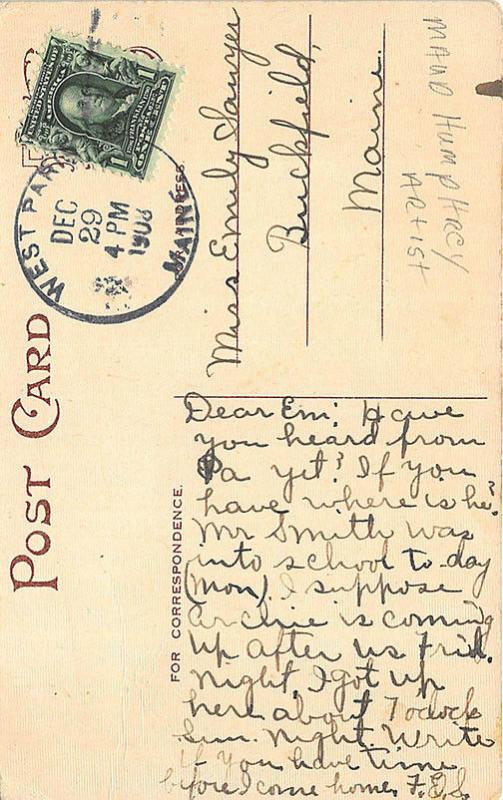 POST CARD
WEST PARIS
DEC
29
4 PM
1908
MAINE
UNITED STATES OF AMERICA
1
1
Miss Emily Sawyer
Buckfield,
Maine.
MAUD HUMPHREY
ARTIST
FOR CORRESPONDENCE.
Dear Em: Have
you heard from
Pa yet? If you
have where is he?
Mr Smith was
into school to-day
(Mon). I suppose
Archie is coming
up after us Frid.
night. I got up
here about 7 oclock
Sun. night. Write
if you have time
before I come home. F.E.S.